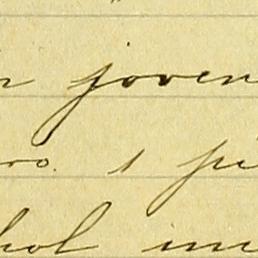 n joven
ro. 1 pi
hol un